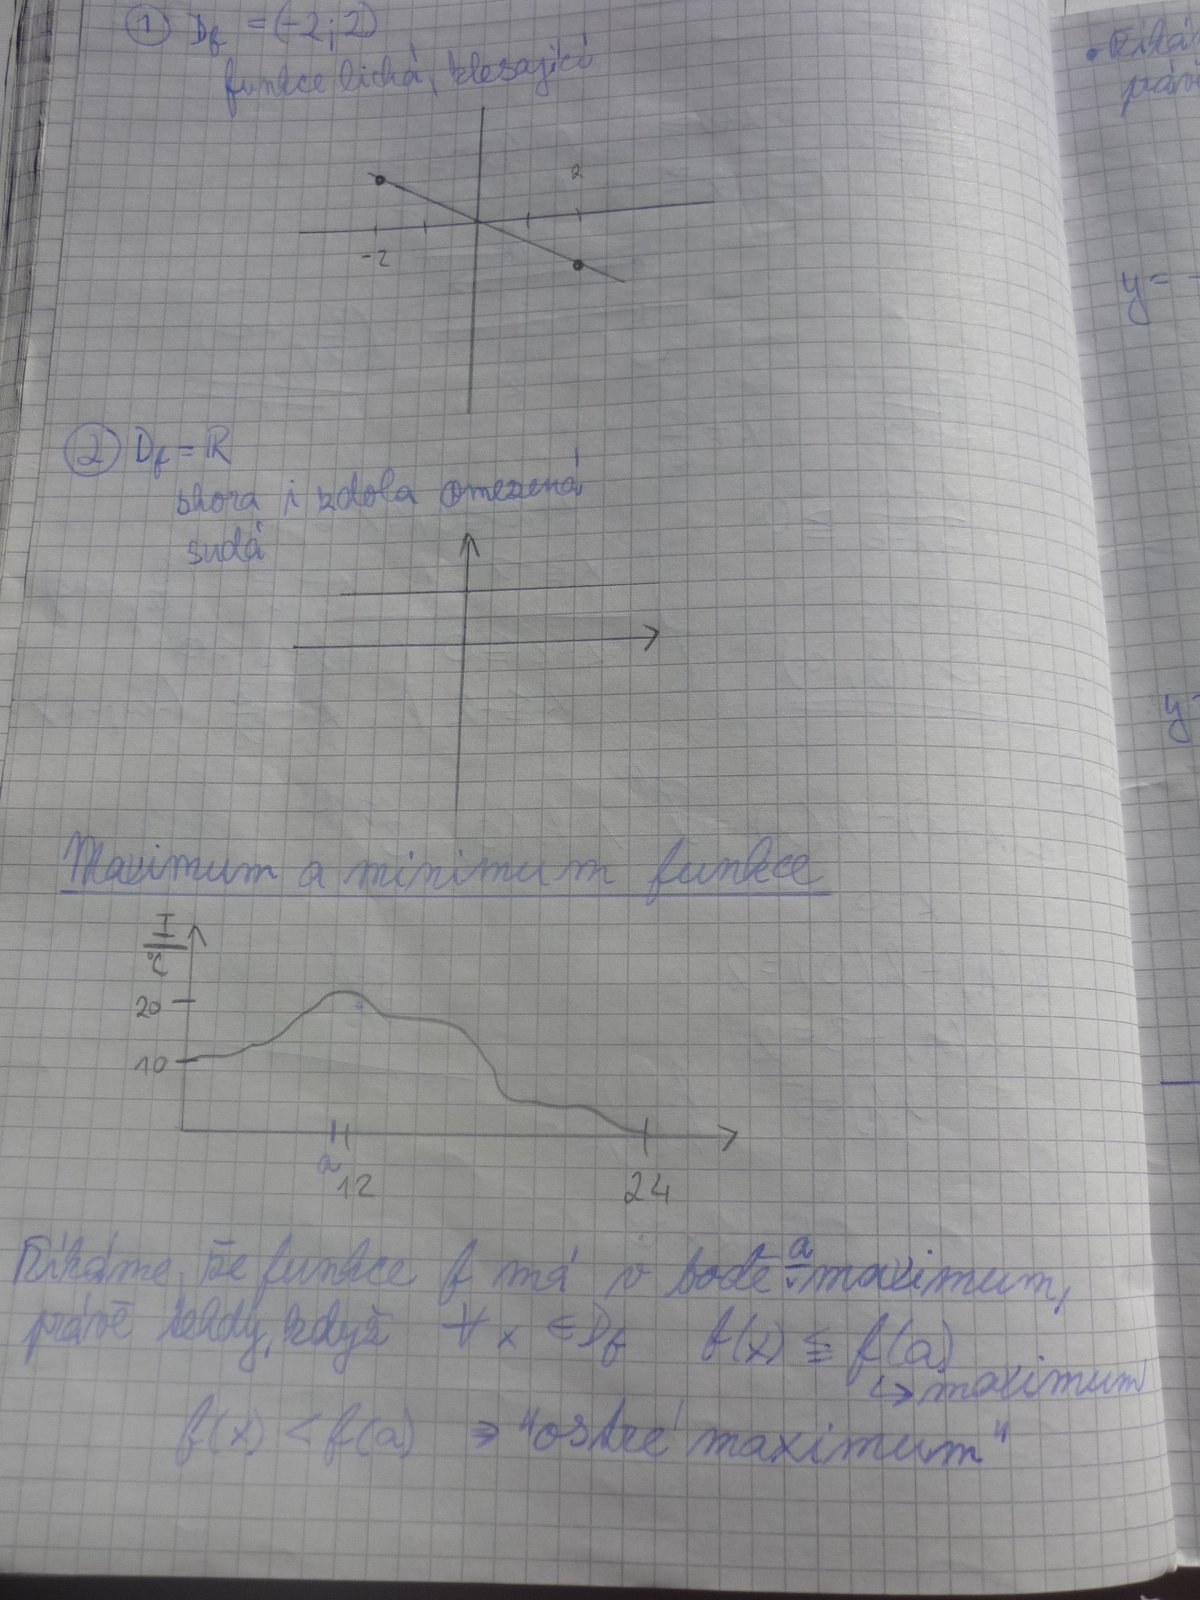 ① Df = (-2; 2)
funkce lichá, klesající
2
-2
② Df = R
shora i zdola omezená
sudá
Maximum a minimum funkce
T/°C
20
10
a
12
24
Říkáme, že funkce f má v bodě a maximum,
právě tehdy, když ∀x ∈ Df f(x) ≤ f(a)
↳ maximum
f(x) < f(a) ⇒ "ostré maximum"
• Říká
právě
y = -
y =